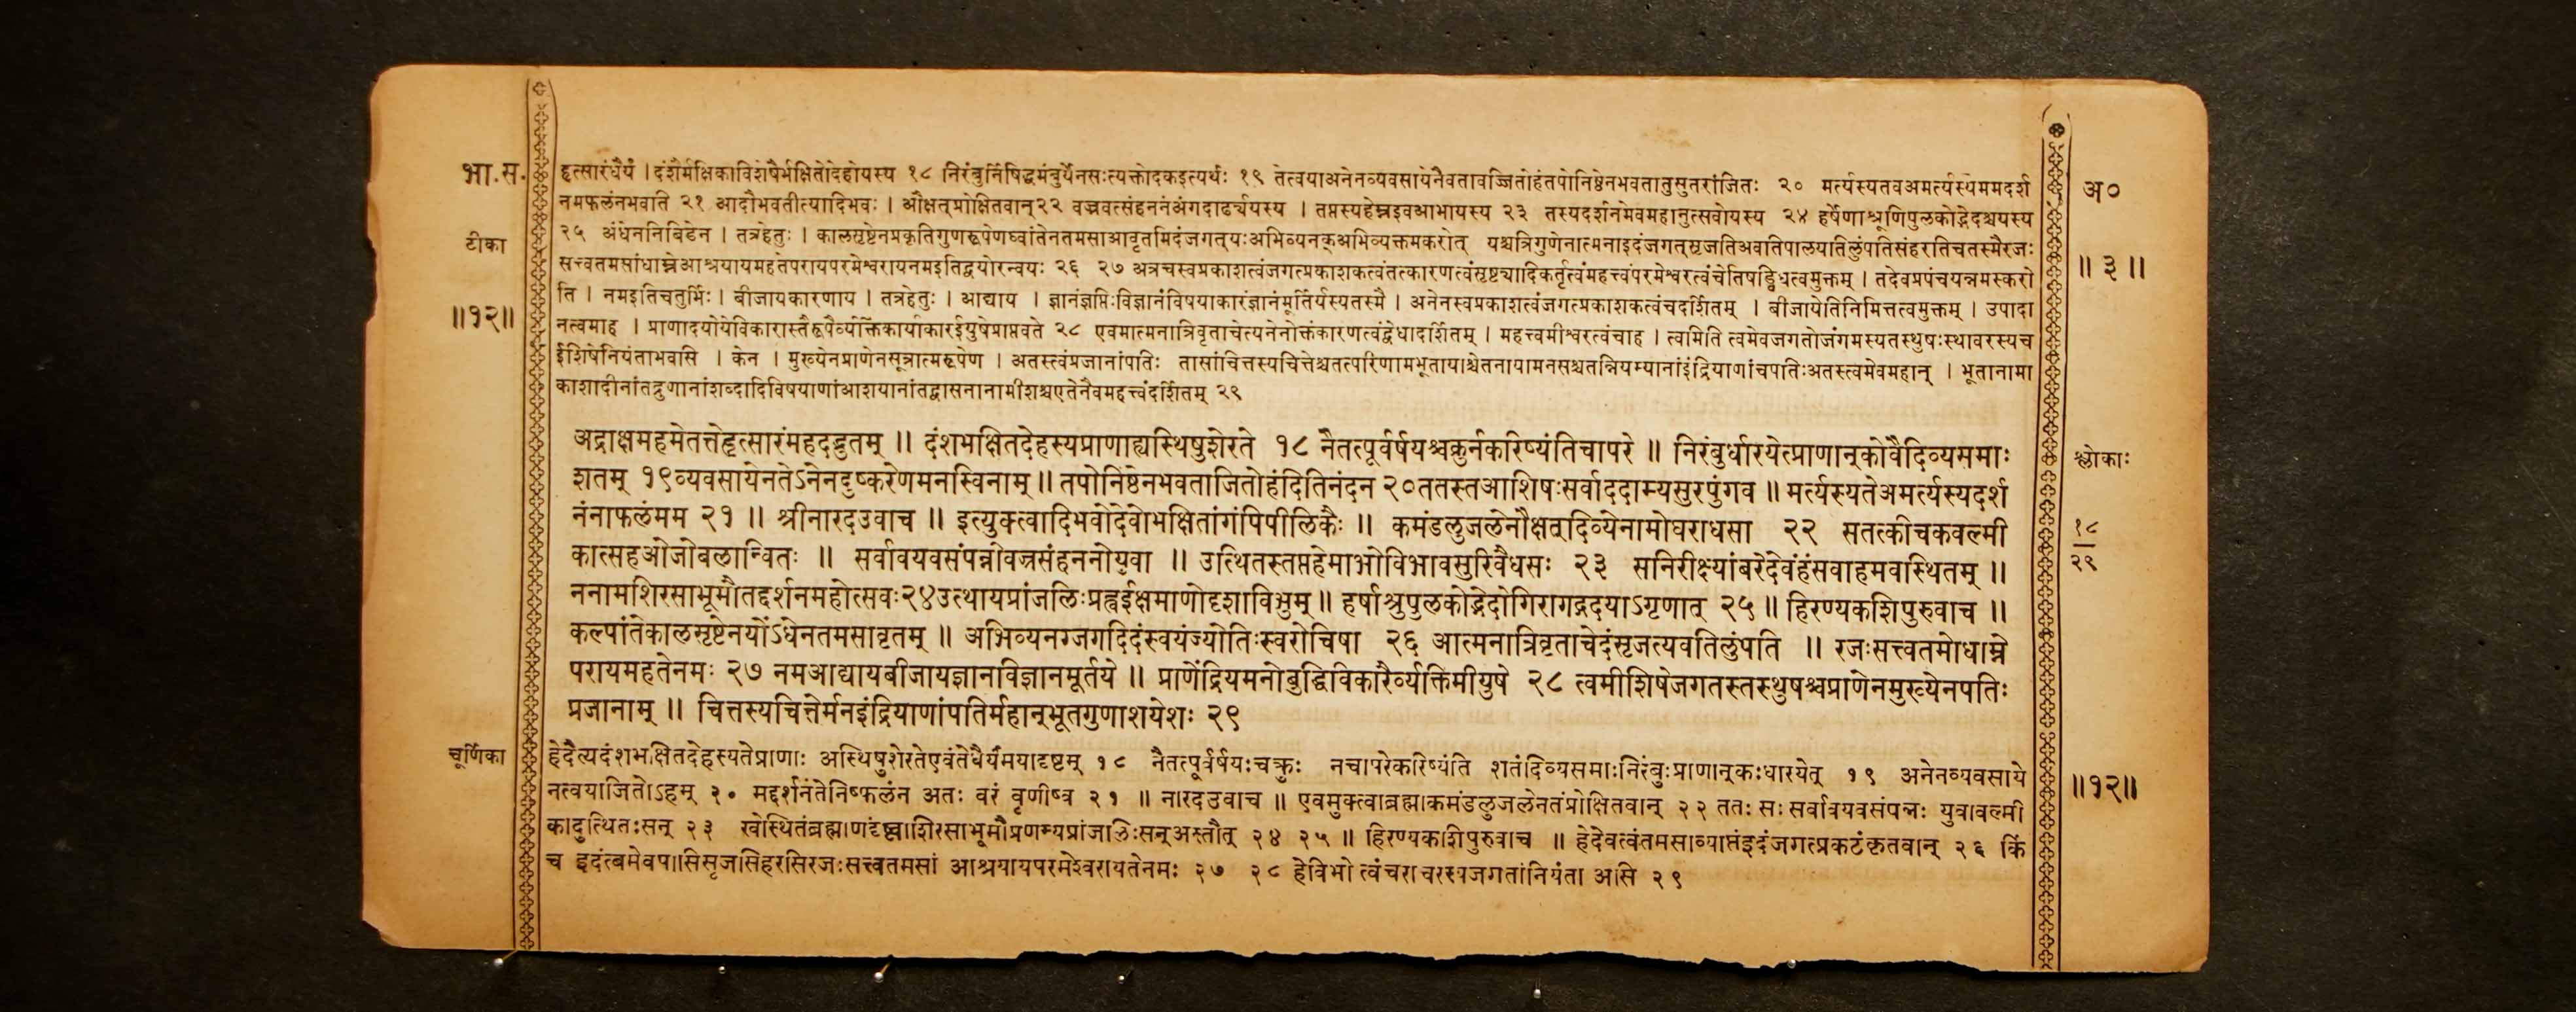 भा.स.
टीका
॥१२॥
हृत्सारंधैर्यं । दंशैर्मक्षिकाविशेषैर्भक्षितोदेहोयस्य १८ निरंबुर्निषिद्धमंबुयेनसःत्यक्तोदकइत्यर्थः १९ तेत्वयाअनेनव्यवसायेनैवतावज्जितोहंतपोनिष्ठेनभवतातुसुतरांजितः २० मर्त्यस्यतवअमर्त्यस्यममदर्श
नमफलंनभवति २१ आदौभवतीत्यादिभवः । औक्षत्प्रोक्षितवान्२२ वज्रवत्संहननंअंगदार्ढ्यंयस्य । तप्तस्यहेम्नइवआभायस्य २३ तस्यदर्शनमेवमहानुत्सवोयस्य २४ हर्षेणाश्रूणिपुलकोद्भेदश्चयस्य
२५ अंधेननिबिडेन । तत्रहेतुः । कालसृष्टेनप्रकृतिगुणरूपेणध्वांतेनतमसाआवृतमिदंजगत्यःअभिव्यनक्अभिव्यक्तमकरोत् यश्चत्रिगुणेनात्मनाइदंजगत्सृजतिअवतिपालयतिलुंपतिसंहरतिचतस्मैरजः
सत्त्वतमसांधाम्नेआश्रयायमहतेपरायपरमेश्वरायनमइतिद्वयोरन्वयः २६ २७ अत्रचस्वप्रकाशत्वंजगत्प्रकाशकत्वंतत्कारणत्वंसृष्ट्यादिकर्तृत्वंमहत्त्वंपरमेश्वरत्वंचेतिषड्विधत्वमुक्तम् । तदेवप्रपंचयन्नमस्करो
ति । नमइतिचतुर्भिः । बीजायकारणाय । तत्रहेतुः । आद्याय । ज्ञानंज्ञप्तिःविज्ञानंविषयाकारंज्ञानंमूर्तिर्यस्यतस्मै । अनेनस्वप्रकाशत्वंजगत्प्रकाशकत्वंचदर्शितम् । बीजायेतिनिमित्तत्वमुक्तम् । उपादा
नत्वमाह । प्राणादयोयेविकारास्तैरूपैर्व्यक्तिंकार्याकारंईयुषेप्राप्तवते २८ एवमात्मनात्रिवृताचेत्यनेनोक्तंकारणत्वंद्वेधादर्शितम् । महत्त्वमीश्वरत्वंचाह । त्वमिति त्वमेवजगतोजंगमस्यतस्थुषःस्थावरस्यच
ईशिषेनियंताभवसि । केन । मुख्येनप्राणेनसूत्रात्मरूपेण । अतस्त्वंप्रजानांपतिः तासांचित्तस्यचित्तेश्चतत्परिणामभूतायाश्चेतनायामनसश्चतन्नियम्यानांइंद्रियाणांचपतिःअतस्त्वमेवमहान् । भूतानामा
काशादीनांतद्गुणानांशब्दादिविषयाणांआशयानांतद्वासनानामीशश्चएतेनैवमहत्त्वंदर्शितम् २९
अ०
॥ ३ ॥
अद्राक्षमहमेतत्तेहृत्सारंमहदद्भुतम् ॥ दंशभक्षितदेहस्यप्राणाह्यस्थिषुशेरते १८ नैतत्पूर्वर्षयश्चक्रुर्नकरिष्यंतिचापरे ॥ निरंबुर्धारयेत्प्राणान्कोवैदिव्यसमाः
शतम् १९व्यवसायेनतेऽनेनदुष्करेणमनस्विनाम् ॥ तपोनिष्ठेनभवताजितोहंदितिनंदन २०ततस्तआशिषःसर्वाददाम्यसुरपुंगव ॥ मर्त्यस्यतेअमर्त्यस्यदर्श
नंनाफलंमम २१ ॥ श्रीनारदउवाच ॥ इत्युक्त्वादिभवोदेवोभक्षितांगंपिपीलिकैः ॥ कमंडलुजलेनौक्षत्दिव्येनामोघराधसा २२ सतत्कीचकवल्मी
कात्सहओजोबलान्वितः ॥ सर्वावयवसंपन्नोवज्रसंहननोयुवा ॥ उत्थितस्तप्तहेमाभोविभावसुरिवैधसः २३ सनिरीक्ष्यांबरेदेवंहंसवाहमवस्थितम् ॥
ननामशिरसाभूमौतद्दर्शनमहोत्सवः२४उत्थायप्रांजलिःप्रह्वईक्षमाणोदृशाविभुम् ॥ हर्षाश्रुपुलकोद्भेदोगिरागद्गदयाऽगृणात् २५ ॥ हिरण्यकशिपुरुवाच ॥
कल्पांतेकालसृष्टेनयोंऽधेनतमसावृतम् ॥ अभिव्यनग्जगदिदंस्वयंज्योतिःस्वरोचिषा २६ आत्मनात्रिवृताचेदंसृजत्यवतिलुंपति ॥ रजःसत्त्वतमोधाम्ने
परायमहतेनमः २७ नमआद्यायबीजायज्ञानविज्ञानमूर्तये ॥ प्राणेंद्रियमनोबुद्धिविकारैर्व्यक्तिमीयुषे २८ त्वमीशिषेजगतस्तस्थुषश्चप्राणेनमुख्येनपतिः
प्रजानाम् ॥ चित्तस्यचित्तेर्मनइंद्रियाणांपतिर्महान्भूतगुणाशयेशः २९
श्लोकाः
१८
२९
चूर्णिका
हेदैत्यदंशभक्षितदेहस्यतेप्राणाः अस्थिषुशेरतेएवंतेधैर्यंमयादृष्टम् १८ नैतत्पूर्वर्षयःचक्रुः नचापरेकरिष्यंति शतंदिव्यसमाःनिरंबुःप्राणान्कःधारयेत् १९ अनेनव्यवसाये
नत्वयाजितोऽहम् २० मद्दर्शनंतेनिष्फलंन अतः वरं वृणीष्व २१ ॥ नारदउवाच ॥ एवमुक्त्वाब्रह्माकमंडलुजलेनतंप्रोक्षितवान् २२ ततः सः सर्वावयवसंपन्नः युवावल्मी
कादुत्थितःसन् २३ खेस्थितंब्रह्माणंदृष्ट्वाशिरसाभूमौप्रणम्यप्रांजलिःसन्अस्तौत् २४ २५ ॥ हिरण्यकशिपुरुवाच ॥ हेदेवत्वंतमसाव्याप्तंइदंजगत्प्रकटंकृतवान् २६ किं
च इदंत्वमेवपासिसृजसिहरसिरजःसत्त्वतमसां आश्रयायपरमेश्वरायतेनमः २७ २८ हेविभो त्वंचराचरस्यजगतांनियंता असि २९
॥१२॥